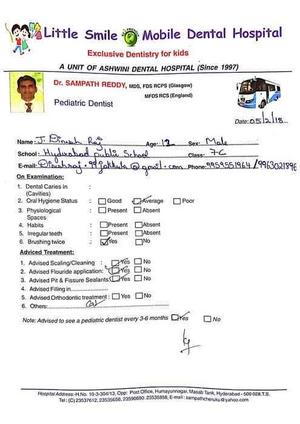 Little Smile Mobile Dental Hospital
Exclusive Dentistry for kids
A UNIT OF ASHWINI DENTAL HOSPITAL (Since 1997)
Dr. SAMPATH REDDY, MDS, FDS RCPS (Glasgow)
MFDS RCS (England)
Pediatric Dentist
Date: 05/2/18
Name: J. Dinesh Raj Age: 12 Sex: Male
School: Hyderabad public School Class: 7C
E-Mail: Phone: 9959551964/9963021896
On Examination:
1. Dental Caries in (Cavities) :
2. Oral Hygiene Status : Good Average Poor
3. Physiological Spaces : Present Absent
4. Habits : Present Absent
5. Irregular teeth : Present Absent
6. Brushing twice : Yes No
Adviced Treatment:
1. Advised Scaling/Cleaning : Yes No
2. Advised Flouride application: Yes No
3. Advised Pit & Fissure Sealants: Yes No
4. Advised Filling in
5. Advised Orthodontic treatment : Yes No
6. Others:
Note: Advised to see a pediatric dentist every 3-6 months Yes No
Hospital Address: H.No. 10-3-304/13, Opp: Post Office, Humayunnagar, Masab Tank, Hyderabad - 500 028 T.S.